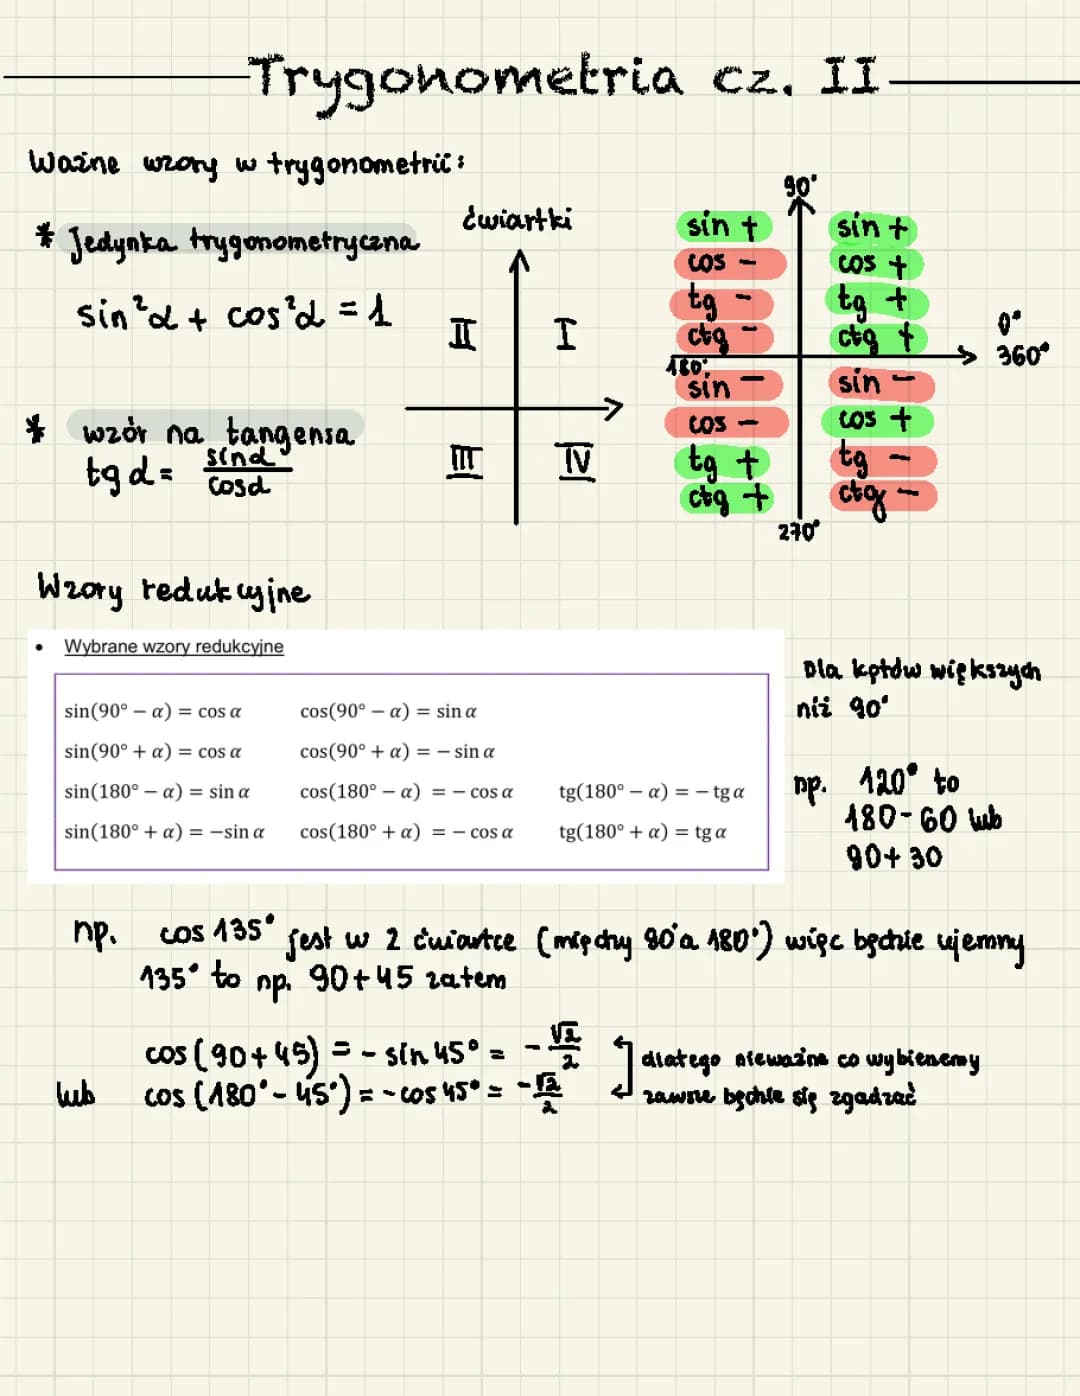 Trygonometria cz. II
Ważne wzory w trygonometrii:
* Jedynka trygonometryczna
sin²α + cos²α = 1
* wzór na tangensa
tg α = sinα / cosα
ćwiartki
II I
III IV
90°
sin + sin +
cos - cos +
tg - tg +
ctg - ctg +
180° 0°
360°
sin - sin -
cos - cos +
tg + tg -
ctg + ctg -
270°
Wzory redukcyjne
• Wybrane wzory redukcyjne
sin(90° − α) = cos α cos(90° − α) = sin α
sin(90° + α) = cos α cos(90° + α) = − sin α
sin(180° − α) = sin α cos(180° − α) = − cos α tg(180° − α) = − tg α
sin(180° + α) = −sin α cos(180° + α) = − cos α tg(180° + α) = tg α
Dla kątów większych
niż 90°
np. 120° to
180-60 lub
90+30
np. cos 135° jest w 2 ćwiartce (między 90° a 180°) więc będzie ujemny
135° to np. 90+45 zatem
cos (90+45) = - sin 45° = - √2/2
lub cos (180° - 45°) = - cos 45° = - √2/2
dlatego nieważne co wybierzemy
zawsze będzie się zgadzać